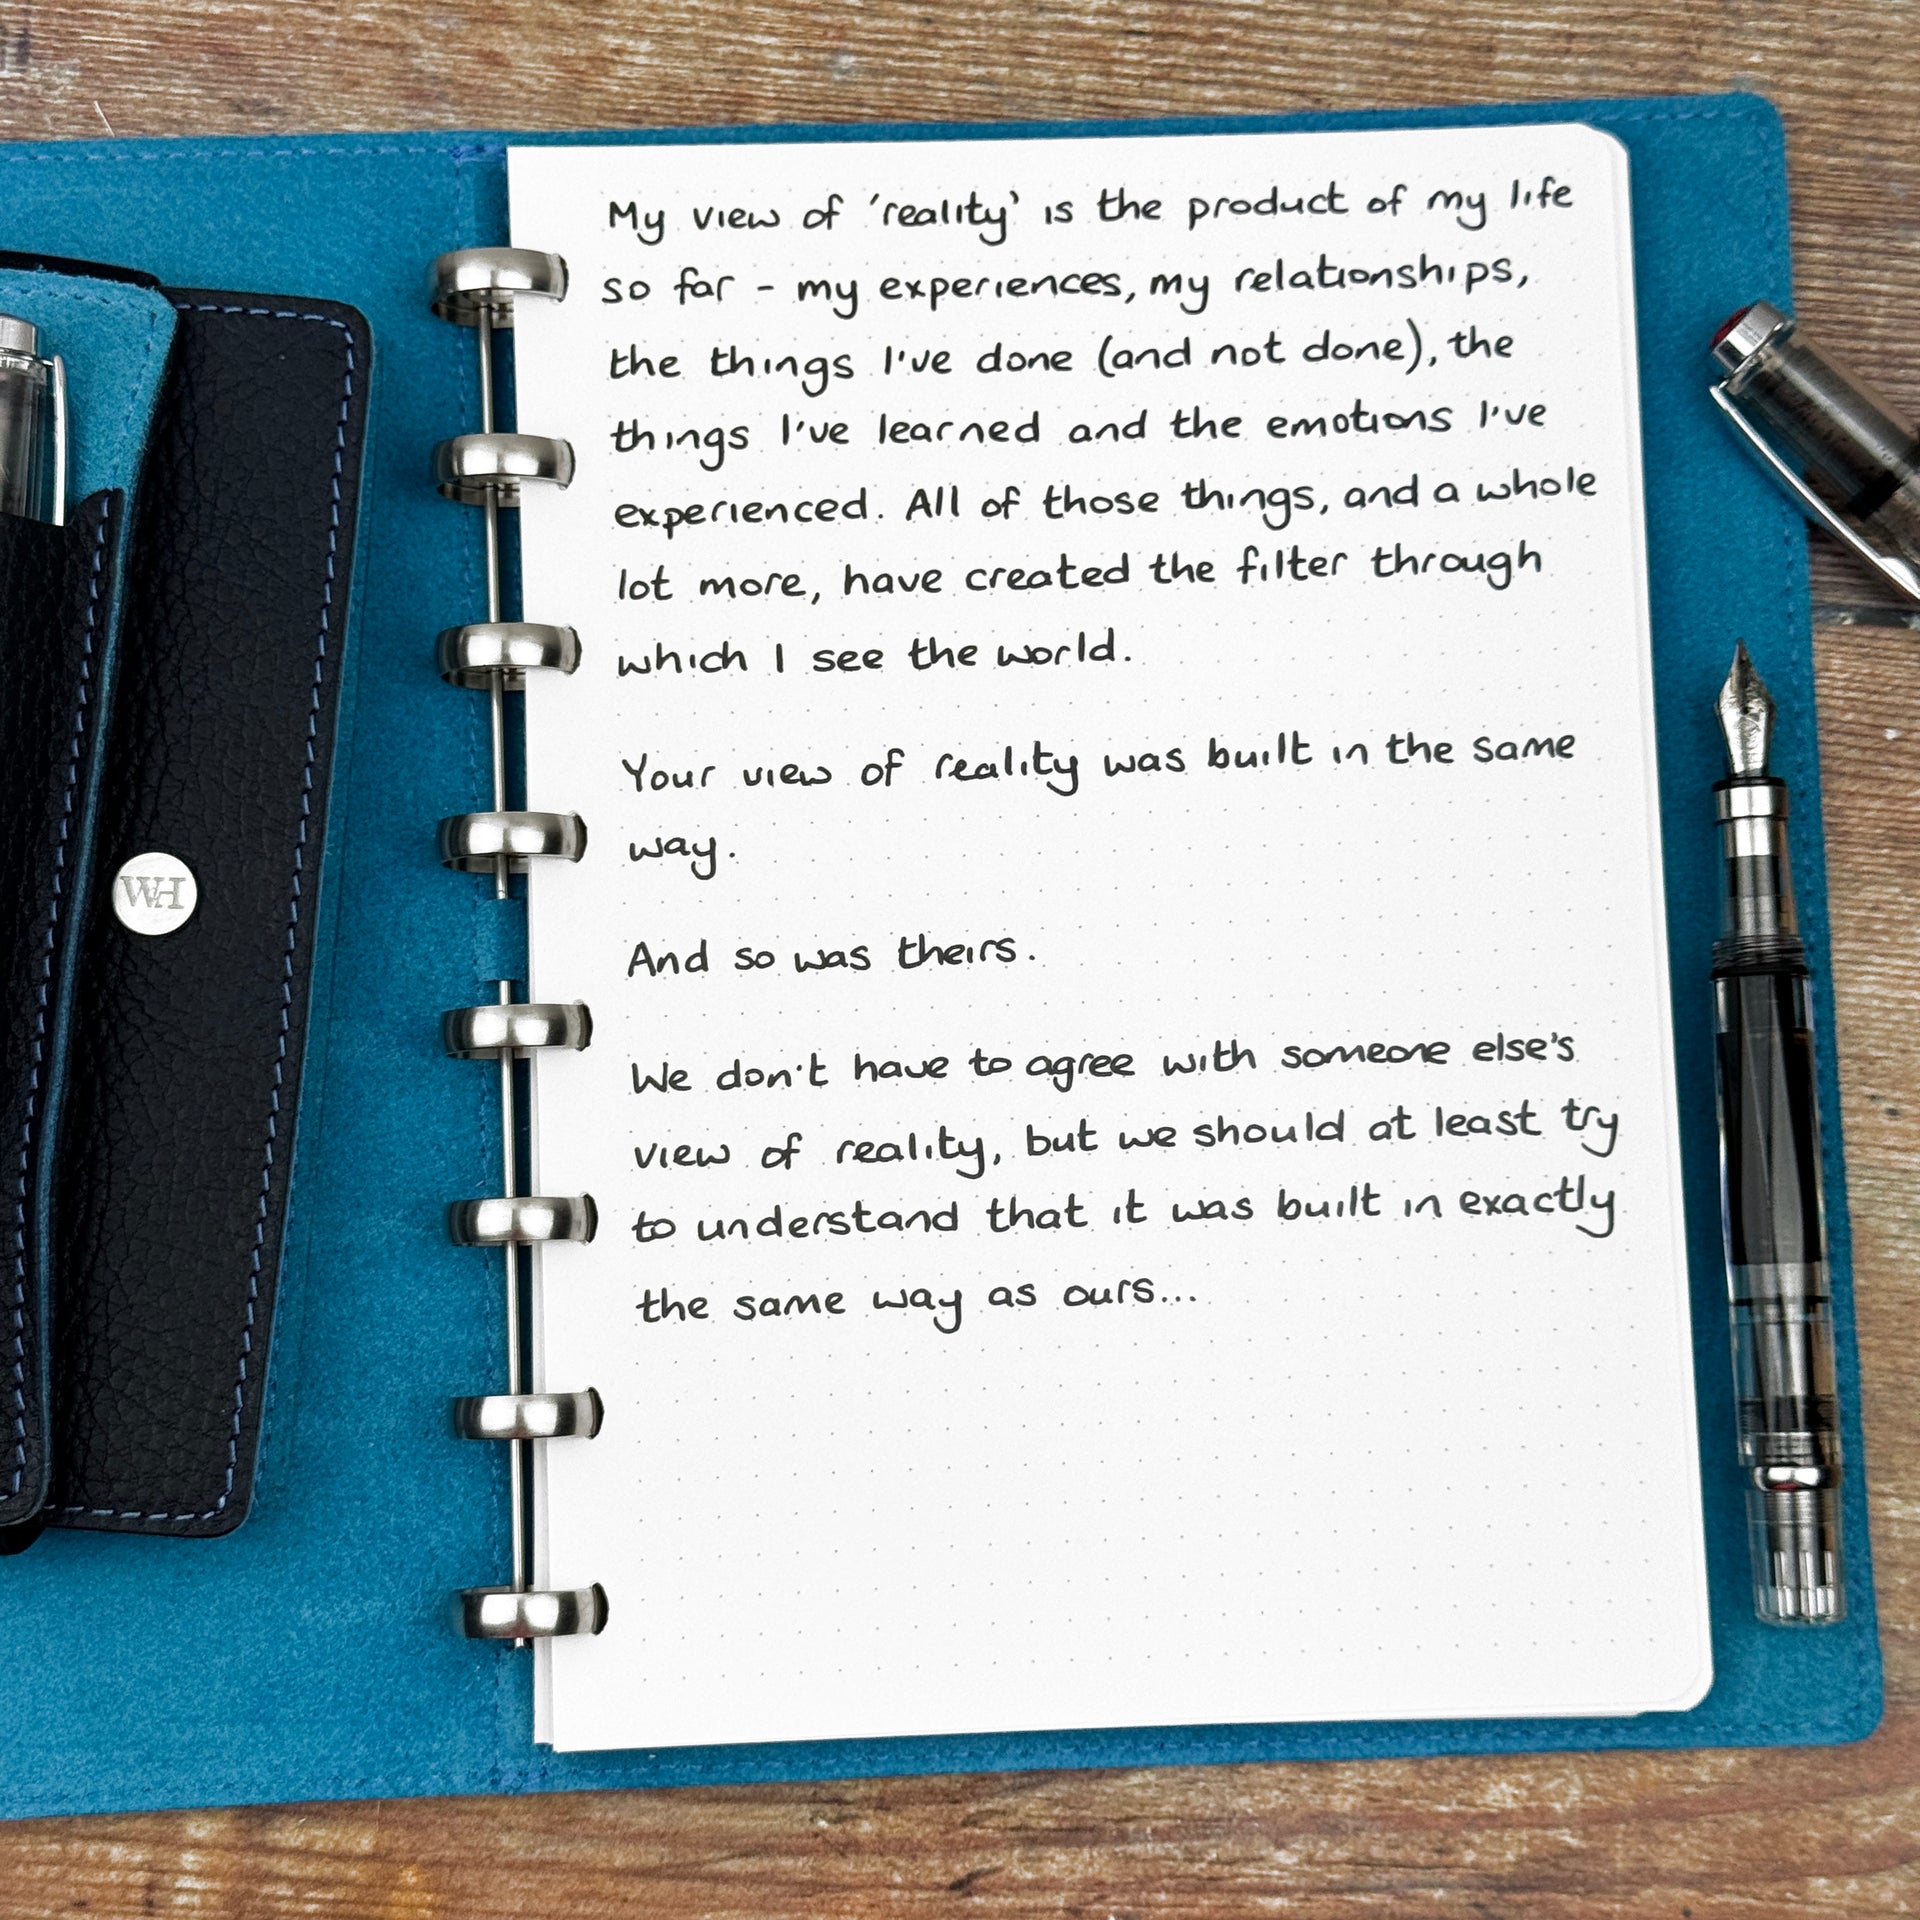 My view of 'reality' is the product of my life
so far - my experiences, my relationships,
the things I've done (and not done), the
things I've learned and the emotions I've
experienced. All of those things, and a whole
lot more, have created the filter through
which I see the world.
Your view of reality was built in the same
way.
And so was theirs.
We don't have to agree with someone else's
view of reality, but we should at least try
to understand that it was built in exactly
the same way as ours...
WH